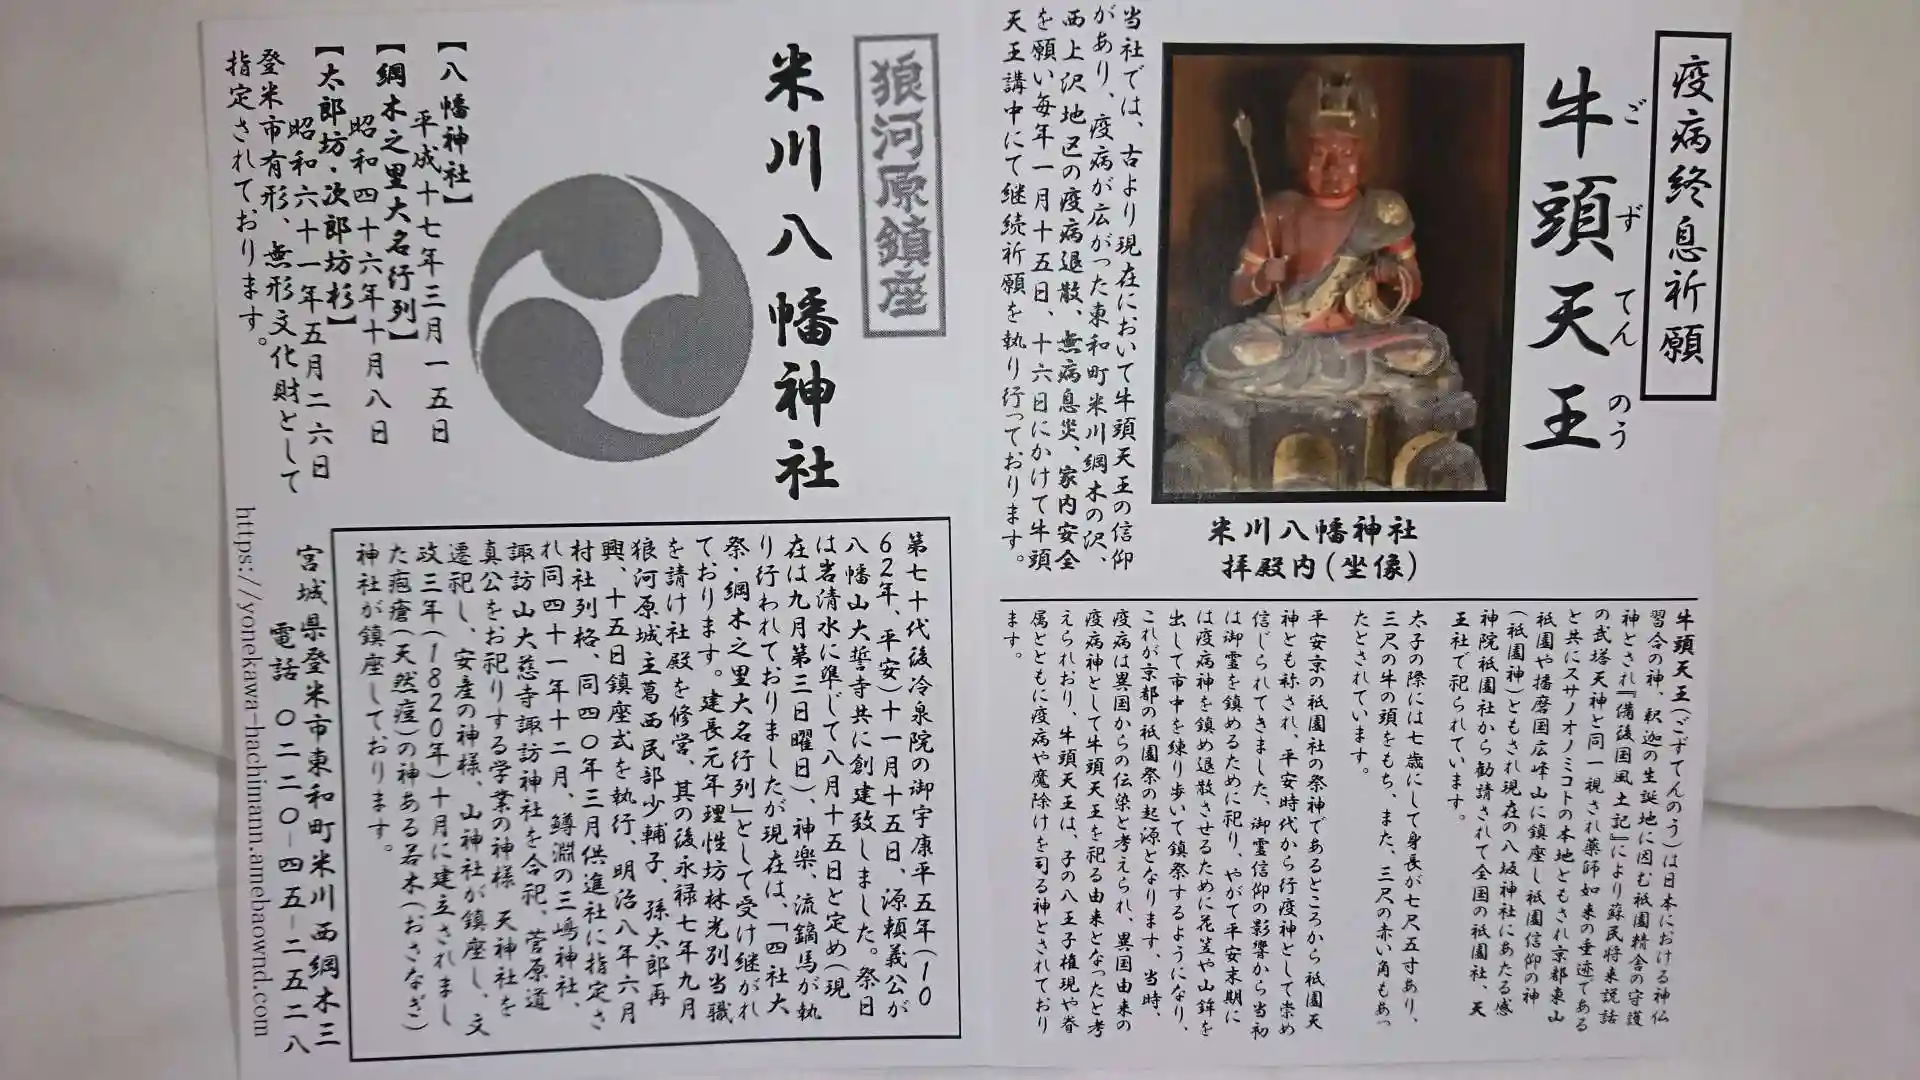 疫病終息祈願
牛頭天王
ごずてんのう
米川八幡神社
拝殿内(坐像)
当社では、古より現在において牛頭天王の信仰
があり、疫病が広がった東和町米川綱木の沢、
西上沢地区の疫病退散、無病息災、家内安全
を願い毎年一月十五日、十六日にかけて牛頭
天王講中にて継続祈願を執り行っております。
牛頭天王(ごずてんのう)は日本における神仏
習合の神、釈迦の生誕地に因む祇園精舎の守護
神とされ『備後国風土記』により蘇民将来説話
の武塔天神と同一視され薬師如来の垂迹である
と共にスサノオノミコトの本地ともされ京都東山
祇園や播磨国広峰山に鎮座し祇園信仰の神
(祇園神)ともされ現在の八坂神社にあたる感
神院祇園社から勧請されて全国の祇園社、天
王社で祀られています。
太子の際には七歳にして身長が七尺五寸あり、
三尺の牛の頭をもち、また、三尺の赤い角もあっ
たとされています。
平安京の祇園社の祭神であるところから祇園天
神とも称され、平安時代から行疫神として崇め
信じられてきました、御霊信仰の影響から当初
は御霊を鎮めるために祀り、やがて平安末期に
は疫病神を鎮め退散させるために花笠や山鉾を
出して市中を練り歩いて鎮祭するようになり、
これが京都の祇園祭の起源となります、当時、
疫病は異国からの伝染と考えられ、異国由来の
疫病神として牛頭天王を祀る由来となったと考
えられおり、牛頭天王は、子の八王子権現や眷
属とともに疫病や魔除けを司る神とされており
ます。
狼河原鎮座
米川八幡神社
【八幡神社】
平成十七年三月一五日
【綱木之里大名行列】
昭和四十六年十月八日
【太郎坊・次郎坊杉】
昭和六十一年五月二六日
登米市有形、無形文化財として
指定されております。
第七十代後冷泉院の御宇康平五年(10
62年、平安)十一月十五日、源頼義公が
八幡山大誓寺共に創建致しました。祭日
は岩清水に準じて八月十五日と定め(現
在は九月第三日曜日)、神楽、流鏑馬が執
り行われておりましたが現在は、「四社大
祭・綱木之里大名行列」として受け継がれ
ております。建長元年理性坊林光別当職
を請け社殿を修営、其の後永禄七年九月
狼河原城主葛西民部少輔子、孫太郎再
興、十五日鎮座式を執行、明治八年六月
村社列格、同四〇年三月供進社に指定さ
れ同四十一年十二月、鱒淵の三嶋神社、
諏訪山大慈寺諏訪神社を合祀、菅原道
真公をお祀りする学業の神様 天神社を
遷祀し、安産の神様、山神社が鎮座し、文
政三年(1820年)十月に建立されまし
た疱瘡(天然痘)の神ある若木(おさなぎ)
神社が鎮座しております。
宮城県登米市東和町米川西綱木三
電話 〇二二〇ー四五ー二五二八
https://yonekawa-hachimann.amebaownd.com